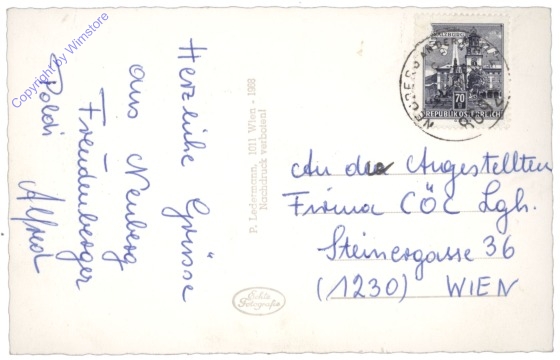 Copyright by Wimstore
Herzliche Grüsse
aus Neuberg
Freudenberger
Poldi Alfred
P. Ledermann, 1011 Wien - 1968
Nachdruck verboten!
Echte
Fotografie
NEUBERG
8692
70
REPUBLIK ÖSTERREICH
An die Angestellten
Firma CÖC Lgh.
Steinergasse 36
(1230) WIEN